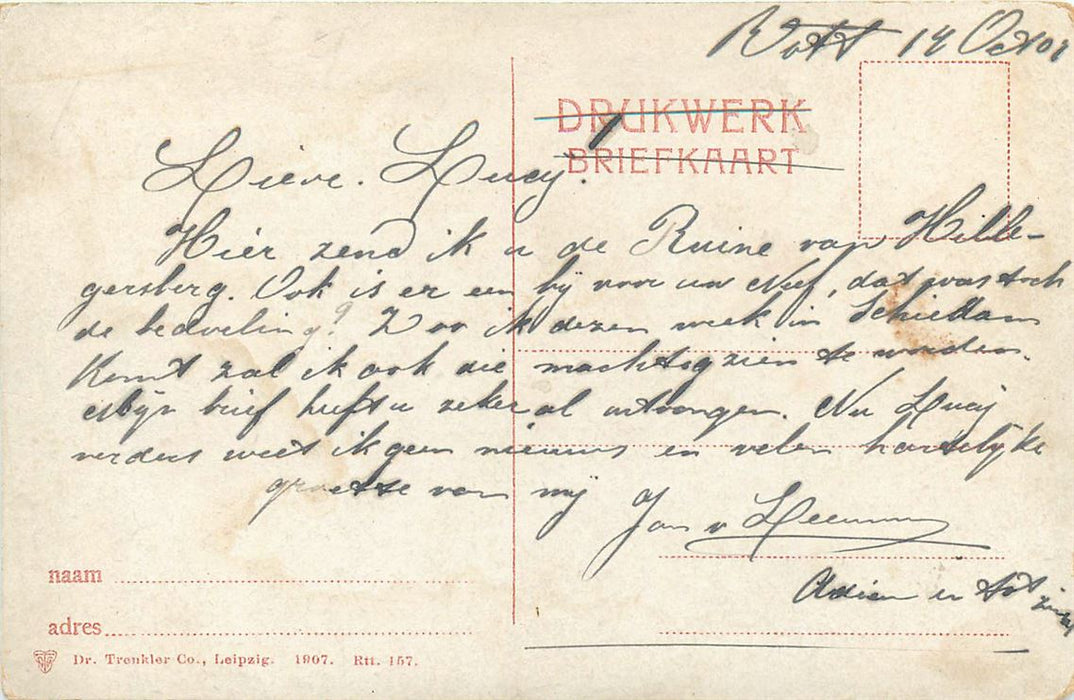 Rott 14 Oct 08
DRUKWERK
BRIEFKAART
Lieve. Lucy!
Hier zend ik u de Ruine van Hille-
gersberg. Ook is er een bij voor uw Neef, dat was toch
de bedoeling? Zoo ik dezen week in Schiedam
komt zal ik ook die machtog zien te worden.
Mijn brief heeft u zeker al ontvangen. Nu Lucij
verders weet ik geen nieuws en velen hartelijke
groette van mij Jan v
Adieu en tot ziens
naam
adres
Dr. Trenkler Co., Leipzig. 1907. Rtt. 157.